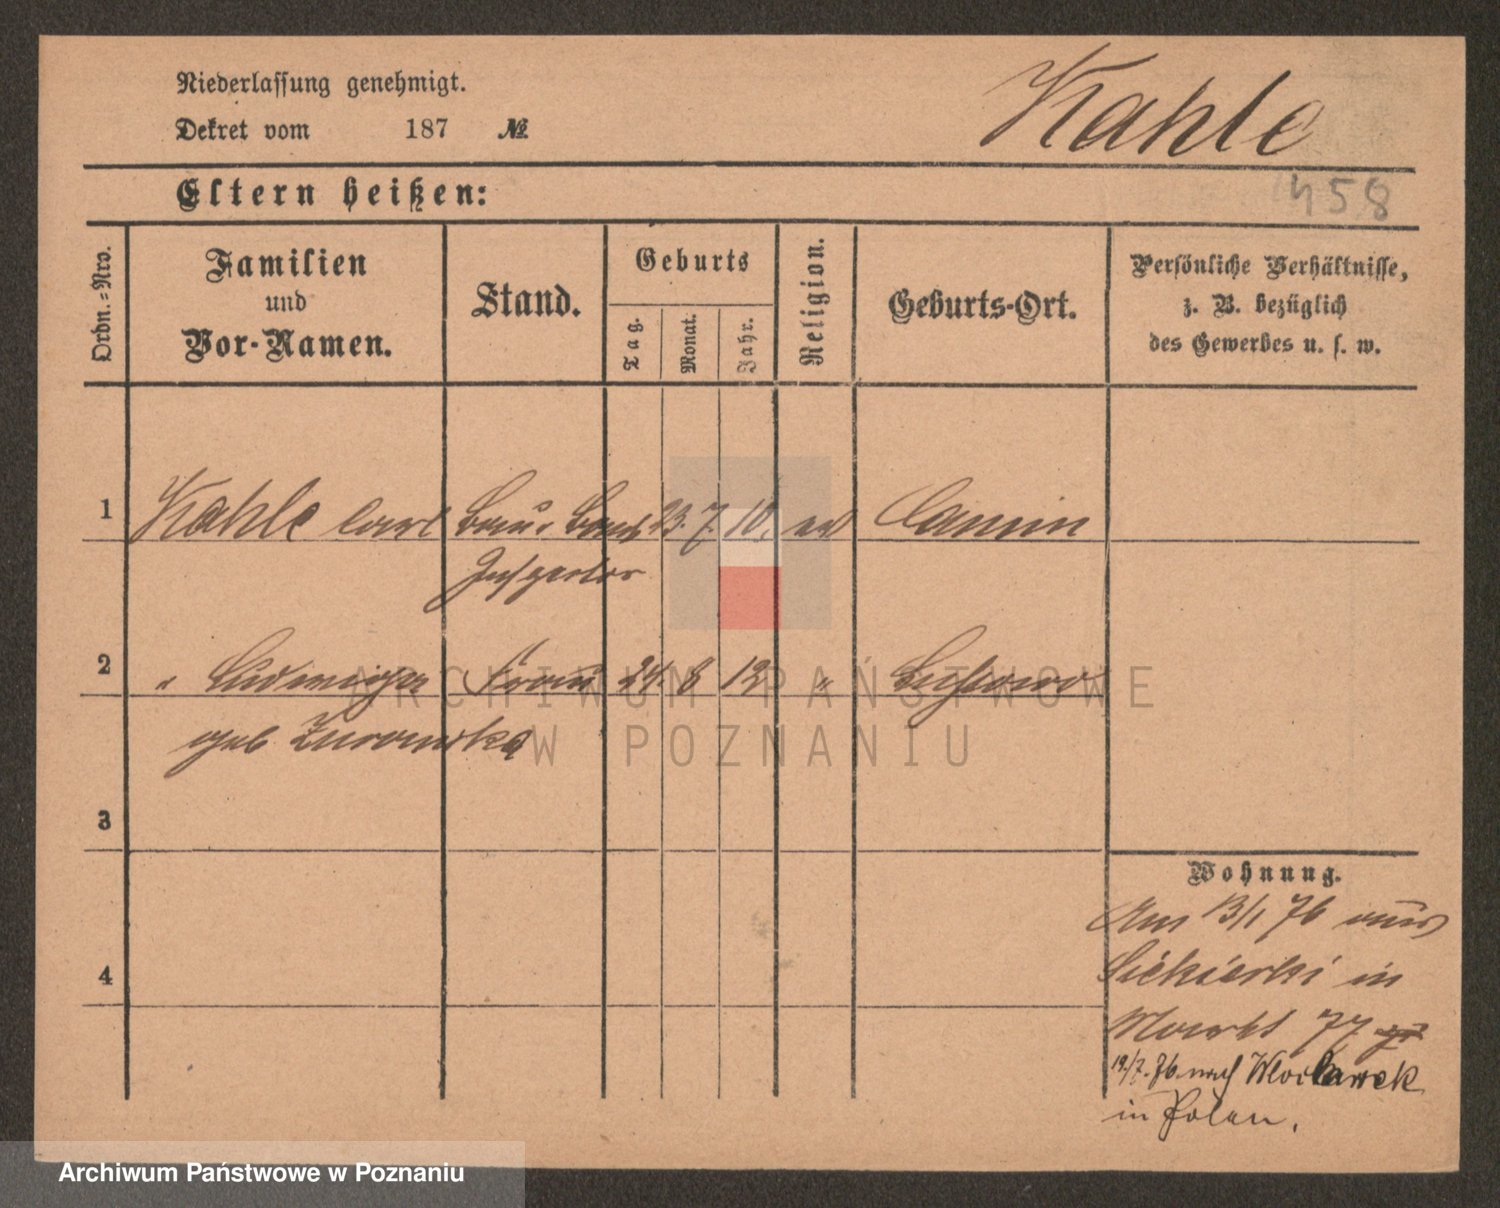 Niederlassung genehmigt.
Dekret vom 187 №
Kahle
458
Eltern heißen:
Ordn.=Nro.
Familien
und
Vor-Namen.
Stand.
Geburts
Tag.
Monat.
Jahr.
Religion.
Geburts-Ort.
Persönliche Verhältnisse,
z. B. bezüglich
des Gewerbes u. s. w.
1 Kahle Carl Bau 23. 7. 10. ev Camin
Inspector
2 " Ludwiga Frau 24. 8 12 "
geb Zurawska
3
4
Wohnung.
Am 13/1 76 aus
Siekierki in
Markt 77
19/7. 76. nach Wloclawek
in Polen.
ARCHIWUM PAŃSTWOWE
W POZNANIU
Archiwum Państwowe w Poznaniu